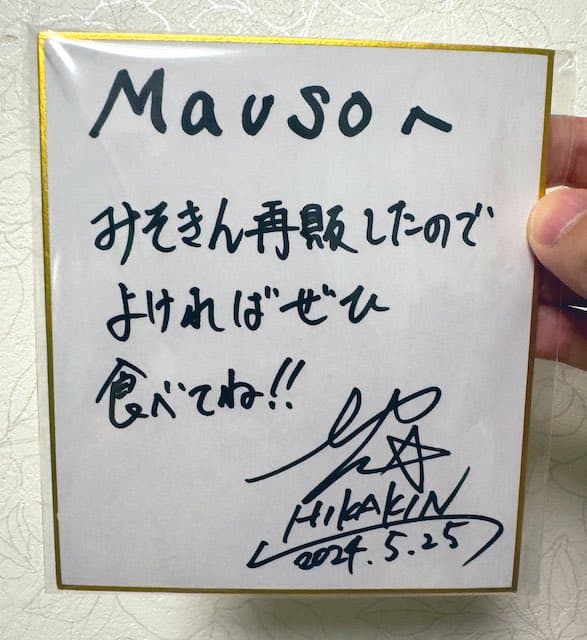 Mausoへ
みそきん再販したので
よければぜひ
食べてね!!
HIKAKIN
2024.5.25